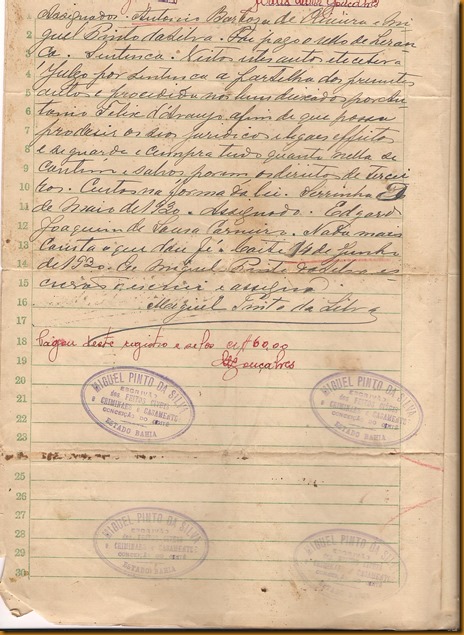 Assignados. Antonio Barboza de Oliveira e Mi-
guel Pinto da Silva. Foi pago o sello de heran-
ça. Sentença. Vistos estes autos etcetera
Julgo por sentença a partilha dos presentes
autos e procedida nos bens deixados por An-
tonio Felix d'Araujo, afim de que possa
produzir os seus juridicos e legaes effeitos
e se guarde e cumpra tudo quanto nella se
contém e salvos porem os direitos de tercei-
ros. Custas na forma da lei. Serrinha
de Maio de 1920. Assignado. Edgard
Joaquim de Souza Carneiro. Nada mais
continha o que dou fé. 14 de Junho
de 1920. Eu Miguel Pinto da Silva es-
crivão o escrevi e assigno.
Miguel Pinto da Silva
Pagou deste registro e sellos Cr$ 60,00
Gonçalves
MIGUEL PINTO DA SILVA
ESCRIVÃO
dos FEITOS CIVEIS
e CRIMINAES e CASAMENTO
CONCEIÇÃO DO COITÉ
ESTADO BAHIA
MIGUEL PINTO DA SILVA
ESCRIVÃO
dos FEITOS CIVEIS
e CRIMINAES e CASAMENTO
CONCEIÇÃO DO COITÉ
ESTADO BAHIA
MIGUEL PINTO DA SILVA
ESCRIVÃO
dos FEITOS CIVEIS
e CRIMINAES e CASAMENTOS
CONCEIÇÃO DO COITÉ
ESTADO BAHIA
MIGUEL PINTO DA SILVA
ESCRIVÃO
dos FEITOS CIVEIS
e CRIMINAES e CASAMENTO
2
3
4
5
6
7
8
9
10
11
12
13
14
15
16
17
18
19
20
21
22
23
25
26
27
28
29
30